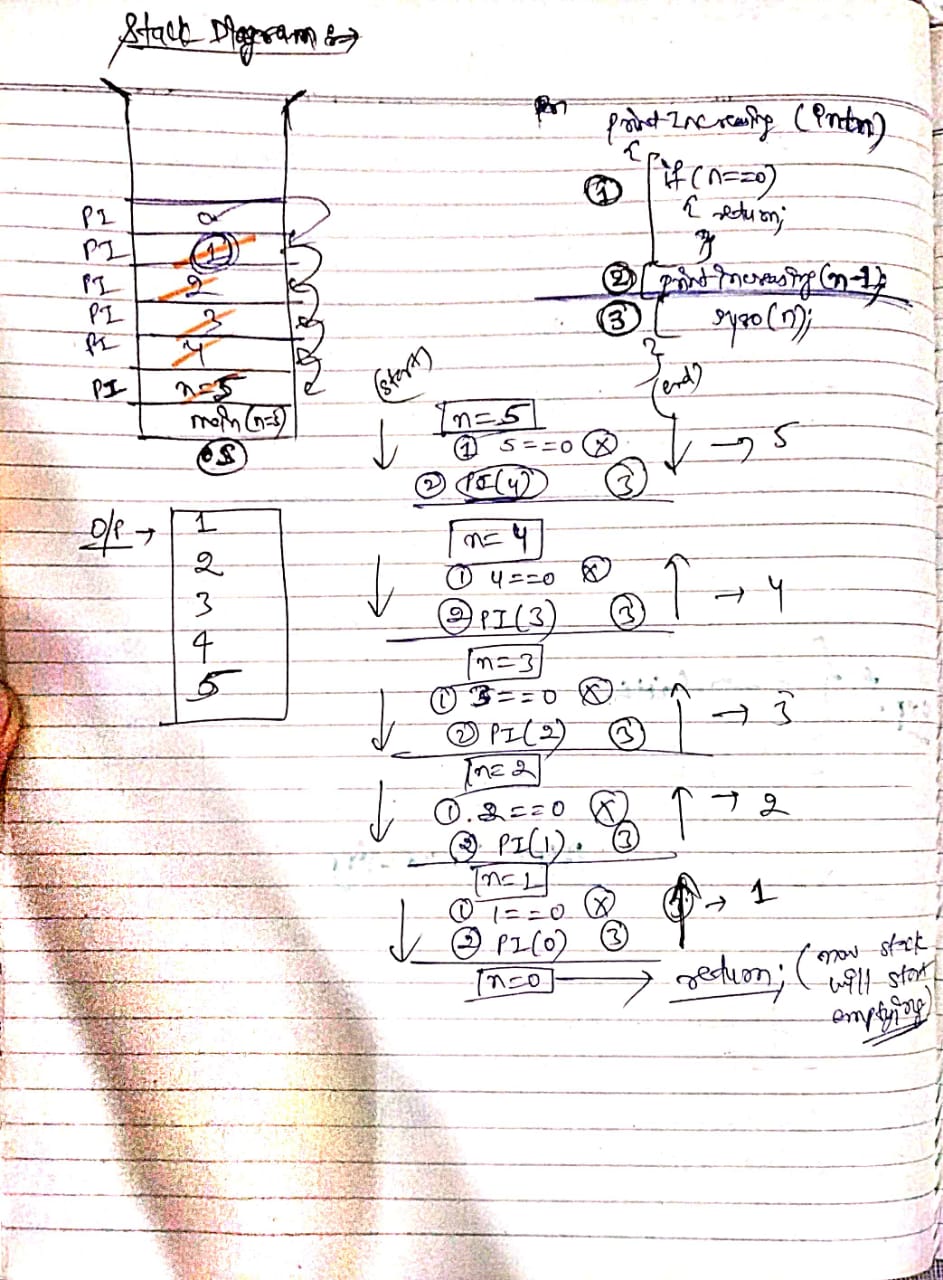 Stack Diagram :->
PI 0
PI 1
PI 2
PI 3
PI 4
PI n=5
main (n=5)
O/P → 1
2
3
4
5
print Increasing (int n)
{
① if (n==0)
{ return;
}
② print Increasing (n-1);
③ syso (n);
}
(start)
(end)
n=5
① 5==0 ⓧ
② PI(4) ③ → 5
n=4
① 4==0 ⓧ
② PI(3) ③ → 4
n=3
① 3==0 ⓧ
② PI(2) ③ → 3
n=2
①. 2==0 ⓧ
② PI(1). ③ → 2
n=1
① 1==0 ⓧ → 1
② PI(0) ③
n=0 → return; (now stack
will start
emptying)